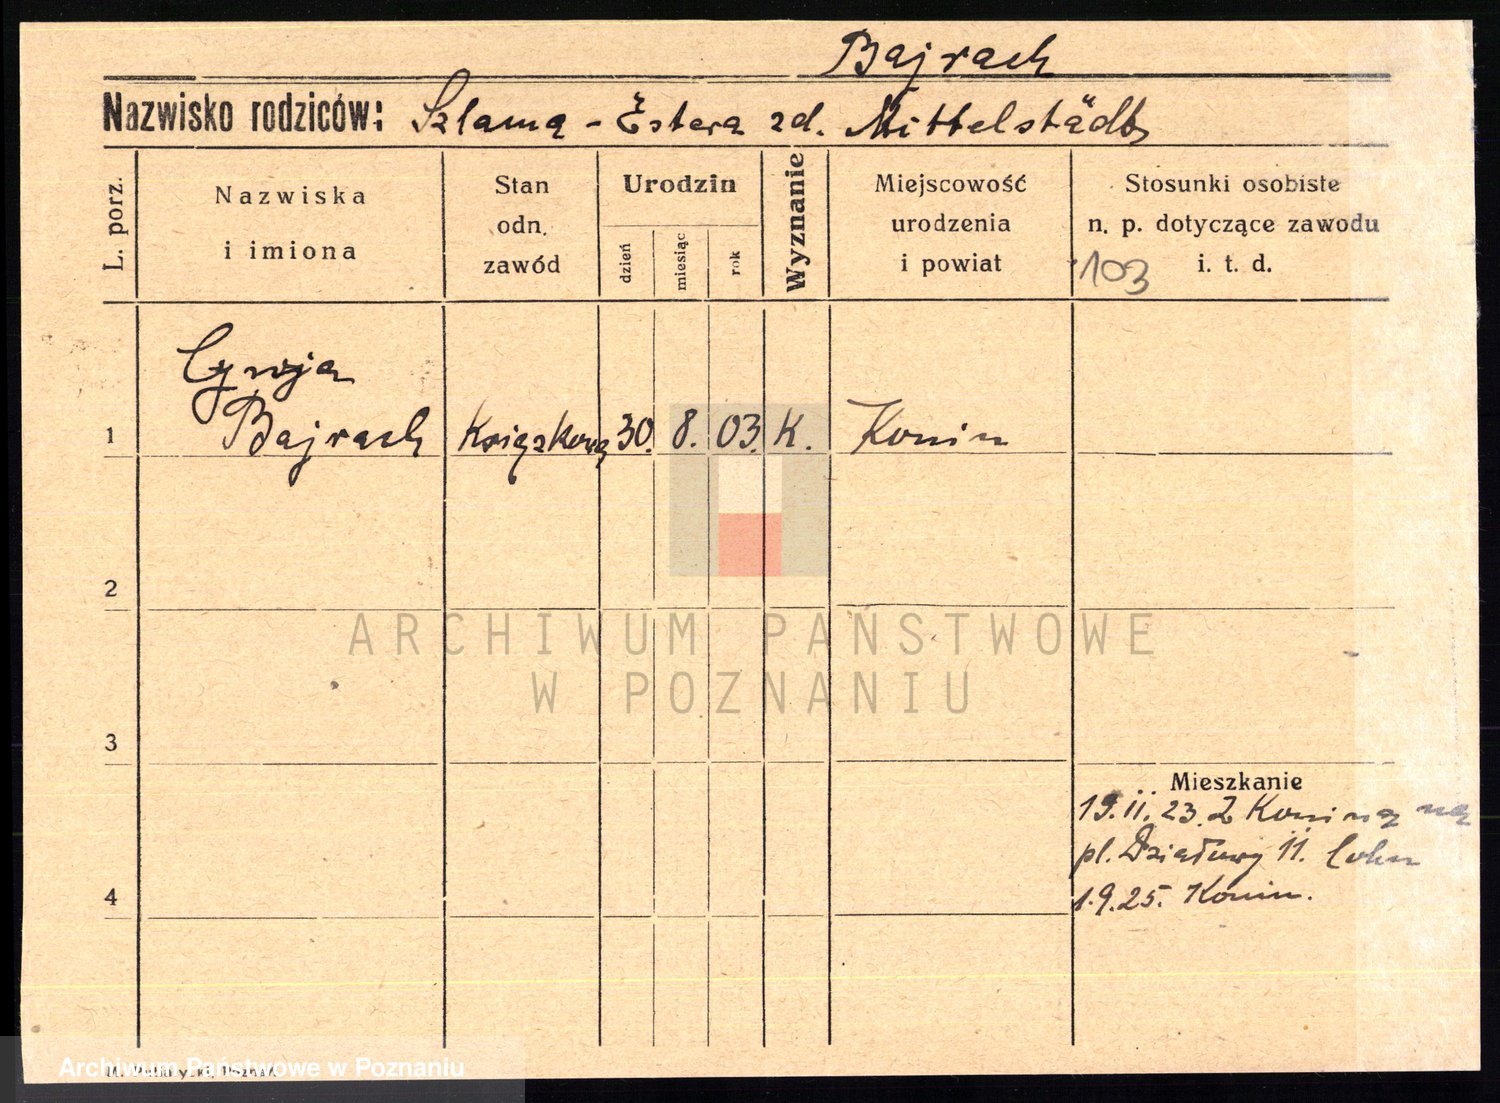 Bajrach
Nazwisko rodziców: Szlama - Estera zd. Mittelstädt
L. porz.
Nazwiska
i imiona
Stan
odn.
zawód
Urodzin
dzień
miesiąc
rok
Wyznanie
Miejscowość
urodzenia
i powiat
Stosunki osobiste
n. p. dotyczące zawodu
i. t. d.
103
Cywja
1 Bajrach Książkowa 30. 8. 03. K. Konin
2
ARCHIWUM PAŃSTWOWE
W POZNANIU
3
Mieszkanie
19.II.23. Z Konina na
pl. Działowy 11. Cohn
4 1.9.25. Konin.
Archiwum Państwowe w Poznaniu
Poznań